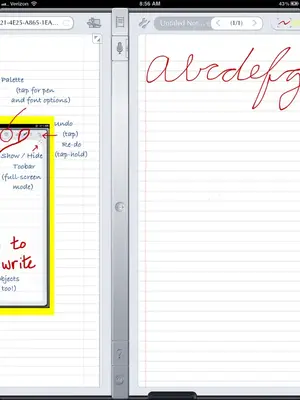 Verizon
8:56 AM
43%
21-4E25-A865-1EA...
Untitled No
(1/1)
Palette
(tap for pen
and font options)
undo
(tap)
Re-do
(tap-hold)
Show / Hide
Toobar
(full-screen
mode)
to
write
objects
too!)
abcdefg
7